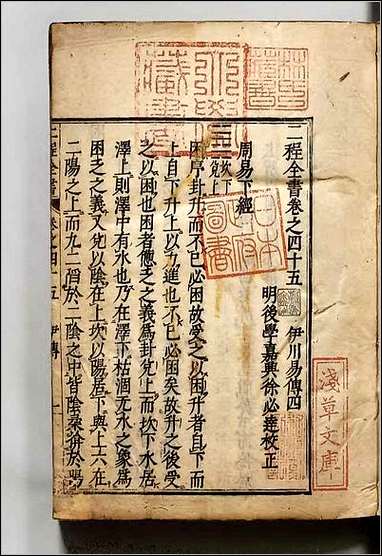 二程全書卷之四十五 伊川易傳四
明後學嘉興徐必達校正
周易下經
坎下
兌上
困序卦升而不已必困故受之以困升者自下而
上自下升上以力進也不已必困矣故升之後受
之以困也困者憊乏之義爲卦兌上而坎下水居
澤上則澤中有水也乃在澤下枯涸无水之象爲
困乏之義又兌以陰在上坎以陽居下與上六在
二陽之上而九二陷於二陰之中皆陰柔揜於陽
二程全書 卷之四十五 伊傳 一
淺草文庫
日本
政府
圖書
林氏
藏書